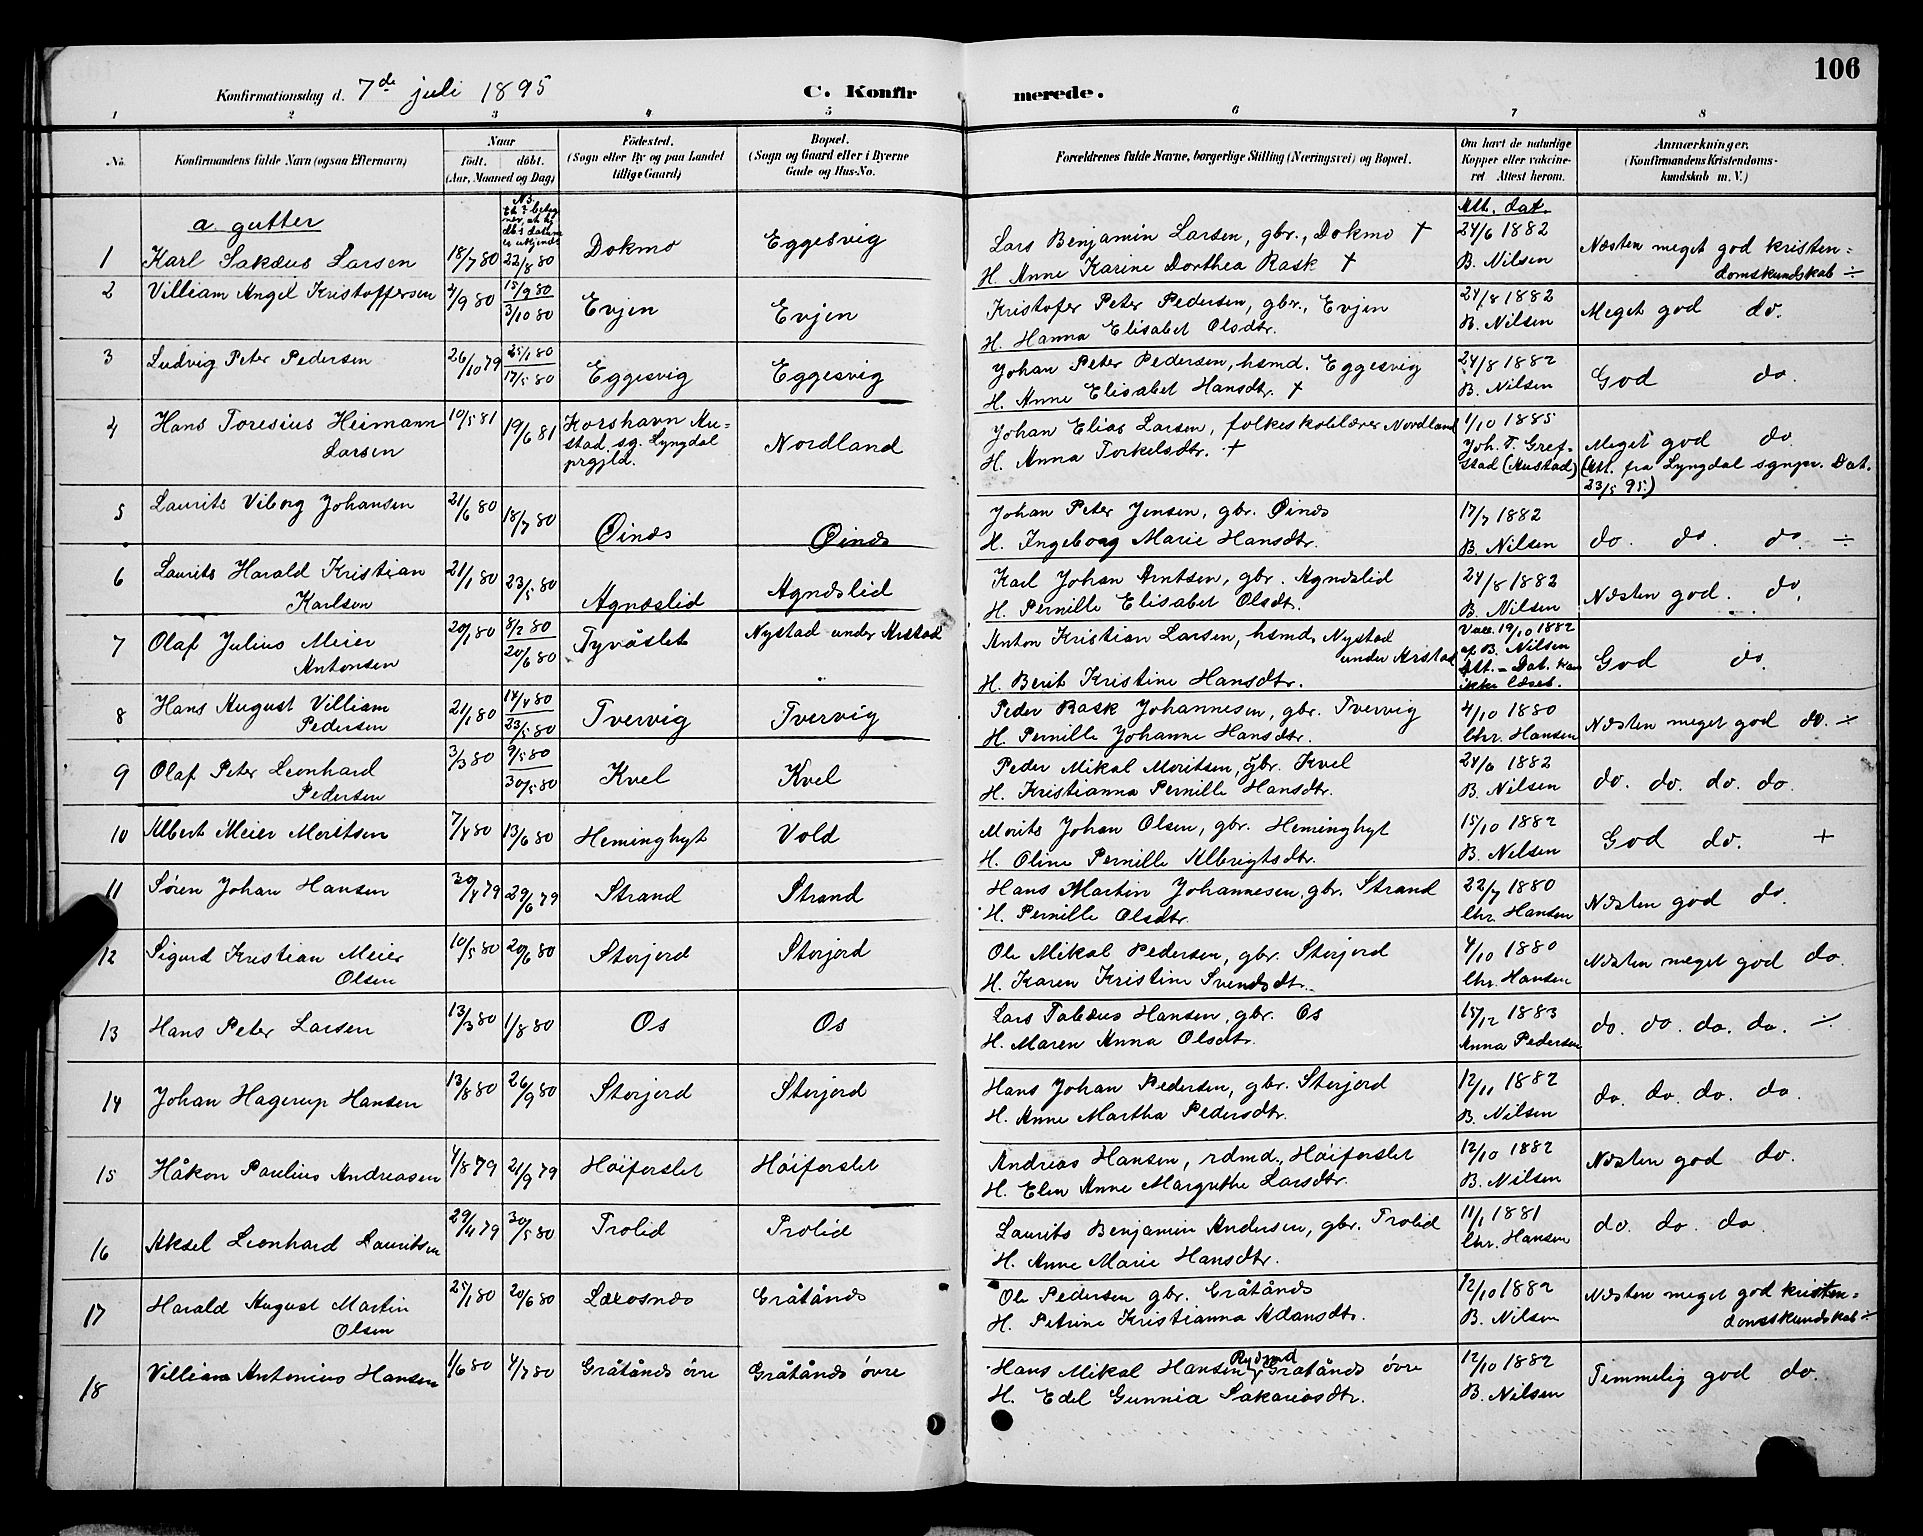 106
Konfirmationsdag d. 7de juli 1895
C. Konfirmerede.
1 2 3 4 5 6 7 8
No.
Konfirmandens fulde Navn (ogsaa Efternavn)
Naar
født. døbt.
(Aar, Maaned og Dag)
Födested.
(Sogn eller By og paa Landet
tillige Gaard)
Bopæl.
(Sogn og Gaard eller i Byerne
Gade og Hus-No.
Forældrenes fulde Navne, borgerlige Stilling (Næringsvei) og Bopæl.
Om havt de naturlige
Kopper eller vakcine-
ret Attest herom.
Anmærkninger.
(Konfirmandens Kristendoms-
kundskab m. V.)
a. gutter
Att. dat.
1 Karl Sakæus Larsen 18/7 80 22/8 80 Dokmo Eggesvig
Lars Benjamin Larsen, gbr., Dokmo † 24/6 1882 Næsten meget god kristen=
H. Anne Karine Dorthea Rask † B. Nilsen domskundskab ÷
2 Villiam Angel Kristoffersen 4/9 80 15/9 80 3/10 80 Evjen Evjen
Kristofer Peter Pedersen, gbr., Evjen 24/8 1882 Meget god do.
H. Hanna Elisabet Olsdtr. B. Nilsen
3 Ludvig Peter Pedersen 26/10 79 25/1 80 17/5 80 Eggesvig Eggesvig
Johan Peter Pedersen, hsmd. Eggesvig 24/8 1882 God do.
H. Anne Elisabet Hansdtr. † B. Nilsen
4 Hans Toresius Heimann 10/5 81 19/6 81 Korshavn Au=
Larsen stad sg. Lyngdal Nordland
prgjld.
Johan Elias Larsen, folkeskolelærer Nordland 1/10 1885
H. Anna Torkelsdtr. † Joh. T. Gref= Meget god do.
stad (Austad) (Att. fra Lyngdal sgnpr. Dat.
23/5 95.)
5 Laurits Viborg Johansen 21/6 80 18/7 80 Øinæs Øinæs
Johan Peter Jensen, gbr. Øinæs 17/7 1882
H. Ingeborg Marie Hansdtr. B. Nilsen do. do. do. ÷
6 Laurits Harald Kristian 21/1 80 23/5 80 Agnæslid Agnæslid
Karlsen
Karl Johan Arntsen, gbr. Agnæslid 24/8 1882 Næsten god. do.
H. Pernille Elisabet Olsdtr. B. Nilsen
7 Olaf Julius Meier 20/1 80 8/2 80 20/6 80 Tyvåslet Nystad under Arstad
Antonsen
Anton Kristian Larsen, hsmd. Nystad Vacc. 19/10 1882
under Arstad af B. Nilsen God do.
H. Berit Kristine Hansdtr. Att. - Dat. kan
ikke læses.
8 Hans August Villiam 21/1 80 14/4 80 23/5 80 Tvervig Tvervig
Pedersen
Peder Rask Johannesen, gbr. Tvervig 4/10 1880 Næsten meget god do. ÷
H. Pernille Johanne Hansdtr. Chr. Hansen
9 Olaf Peter Leonhard 3/3 80 9/5 80 30/5 80 Kvel Kvel
Pedersen
Peder Mikal Moritsen, gbr. Kvel 24/6 1882 do. do. do. do.
H. Kristianna Pernille Hansdtr. B. Nilsen
10 Albert Meier Moritsen 7/4 80 13/6 80 Heminghyt Vold
Morits Johan Olsen, gbr. Heminghyt 15/10 1882 God do. +
H. Oline Pernille Albrigtsdtr. B. Nilsen
11 Søren Johan Hansen 30/4 79 29/6 79 Strand Strand
Hans Martin Johannesen, gbr. Strand 22/7 1880 Næsten god do.
H. Pernille Olsdtr. Chr. Hansen
12 Sigurd Kristian Meier 10/5 80 20/6 80 Storjord Storjord
Olsen
Ole Mikal Pedersen, gbr. Storjord 4/10 1880 Næsten meget god do.
H. Karen Kristine Svendsdtr. Chr. Hansen
13 Hans Peter Larsen 13/3 80 1/8 80 Os Os
Lars Tobæus Hansen, gbr. Os 15/12 1883 do. do. do. do. ÷
H. Maren Anna Olsdtr. Anna Pedersen
14 Johan Hagerup Hansen 13/8 80 26/9 80 Storjord Storjord
Hans Johan Pedersen, gbr. Storjord 12/11 1882 do. do. do. do.
H. Anne Martha Pedersdtr. B. Nilsen
15 Håkon Paulius Andreasen 4/8 79 21/9 79 Høiforslet Høiforslet
Andreas Hansen, rdmd., Høiforslet 12/10 1882 Næsten god do.
H. Elen Anne Margrethe Larsdtr. B. Nilsen
16 Aksel Leonhard Lauritsen 29/11 79 30/5 80 Trolid Trolid
Laurits Benjamin Andersen, gbr. Trolid 11/1 1881 do. do. do.
H. Anne Marie Hansdtr. Chr. Hansen
17 Harald August Martin 25/1 80 20/6 80 Læxosnæs Gråtånæs
Olsen
Ole Pedersen gbr. Gråtånæs 12/10 1882 Næsten meget god kristen=
H. Petrine Kristianna Adamsdtr. B. Nilsen domskundskab ÷
18 Villiam Antonius Hansen 1/6 80 4/7 80 Gråtånæs øvre Gråtånæs øvre
Hans Mikal Hansen, Rydmd Gråtånæs øvre 12/10 1882 Temmelig god do.
H. Edel Gunnia Sakariasdtr. B. Nilsen